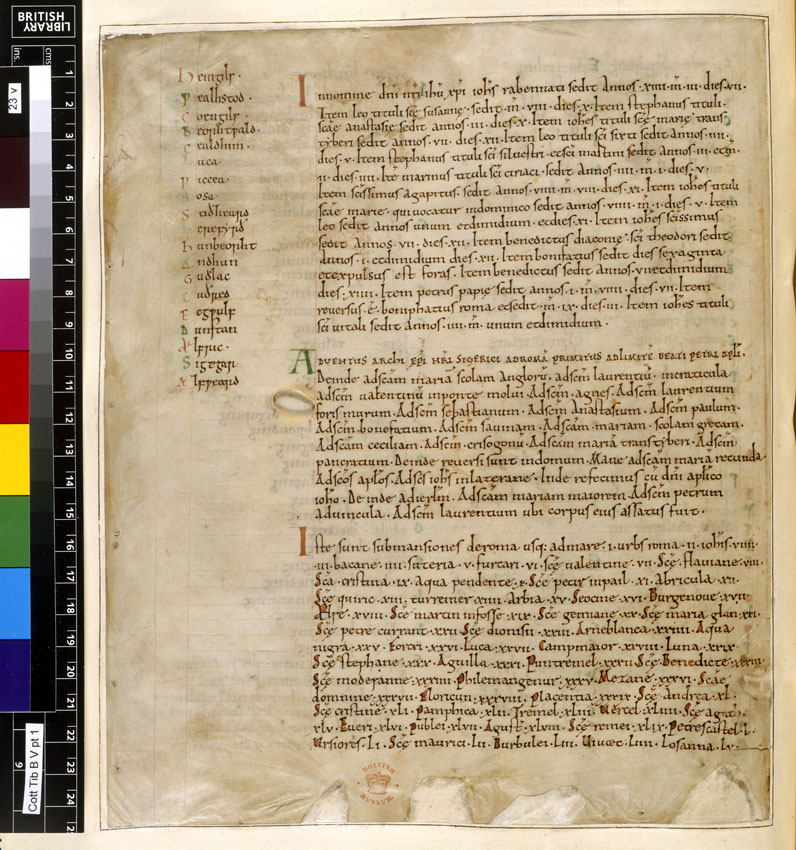 BRITISH
LIBRARY
ins.
cms
1
2
3
4
5
6
7
8
9
10
11
12
13
14
15
16
17
18
19
20
21
22
23
24
23 v
6
Cott Tib B V pt 1
Hengilſ·
ƿealhstod·
Beornƿald·
cealdhun·
luca·
ƿiccea·
bosa·
Sæidheard
hereƿyrd
hunbeorht
andhun
Guðlac
cuðred
ecgƿulf
Dunstan
ælfric·
Sigegar
ælfƿeard
Innomine dñi nr̃i ihũ xp̃i iohs̃ rabennati sedit Annos·xiiii·m̃·iii·dies·vii·
Item leo tituli sc̃e susanne·sedit·m̃·viii·dies·x·Item stephanus tituli·
sc̃ae anastasie sedit annos·iii·dies·x·Item iohẽs tituli sc̃e marie trans
tyberi sedit annos·vii·dies·xii·Item leo tituli sc̃i sixti sedit annos·iiii·
dies·v·Item stephanus tituli sc̃i silvestri·etsc̃i martini sedit annos·iii·etm̃·
ii·dies·iiii·Itẽ marinus tituli sc̃i ciriaci·sedit annos·iiii·m̃·i·dies·v·
Item sc̃issimus agapitus·sedit annos·viiii·m̃·viii·dies·xi·Item iohẽs tituli
sc̃ae marie·qui vocatur indominico sedit annos·viiii·m̃·i·dies·v·Item
leo sedit annos unum etdimidium·etdies·xi·Item iohẽs sc̃issimus
sedit Annos·vii·dies·xii·Item benedictus diaconiẹ sc̃i theodori sedit
annos·i·etdimidium dies·xii·Item bonifatius sedit dies sexaginta
etexpulsus est foras·Item benedictus sedit Annos·vi·etdimidium
dies·xiiii·Item petrus papie sedit annos·i·m̃·viiii·dies·vii·Item
reversus·ẽ·boniphatius roma etsedit·m̃·ix·dies·iii·Item iohẽs tituli
sc̃i vitali sedit Annos·iiii·m̃·unum etdimidium·
ADVENTUS ARCHI EP̃I NR̃I SIGERICI ADROMÃ PRIMITUS ADLIMITẼ BEATI PETRI APL̃I·
Deinde adsc̃am mariã scolam Anglorũ·adsc̃m laurentiũ·incraticula
adsc̃m valentinũ inponte molui·Adsc̃m·agnes·Adsc̃m laurentium
foris murum·Adsc̃m sebastianum·Adsc̃m Anastasium·Adsc̃m paulum·
Adsc̃m·bonefatium·Adsc̃m savinam·Adsc̃am·mariam·scolam grecam·
Adsc̃am ceciliam·Adsc̃m·crisogonũ·Adsc̃am mariã transtyberi·Adsc̃m
pancratium·Deinde reversi sunt indomum·Mane adsc̃am mariã rotunda·
Adsc̃os apl̃os·Adsc̃s iohẽs inlaterane·Inde refecimus cũ dñi ap̃lico
iohõ·Deinde adierl̃m·Adsc̃am mariam maiorem·Adsc̃m petrum
advincula·Adsc̃m laurentium ubi corpus eius assatus fuit·
Iste sunt submansiones deroma usq; admare·i·urbs roma·ii·iohis̃·viiii·
iii·bacane·iiii·suteria·v·furcari·vi·sc̃e valentine·vii·Sc̃e·flaviane·viii·
Sc̃a·cristina·ix·Aqua pendente·x·Sc̃e petir inpail·xi·Abricula·xii·
Sc̃e quiric·xiii·turreiner·xiiii·Arbia·xv·Seocine·xvi·Burgenove·xvii·
Ælse·xviii·Sc̃e martin infosse·xix·Sc̃e gemiane·xx·Sc̃e maria glan·xxi·
Sc̃e petre currant·xxii·Sc̃e dionisii·xxiii·Arneblanca·xxiiii·Aqua
nigra·xxv·Forcri·xxvi·Luca·xxvii·Campmaior·xxviii·Luna·xxix·
Sc̃e stephane·xxx·Aguilla·xxxi·Puntremel·xxxii·Sc̃e·Benedicte·xxxiii·
Sc̃e moderanne·xxxiiii·Philemangenur·xxxv·Metane·xxxvi·Sc̃ae
domnine·xxxvii·Floricun·xxxviii·Placentia·xxxix·Sc̃e Andrea·xl·
Sc̃e cristine·xli·Pamphica·xlii·Tremel·xliii·Vercel·xliiii·Sc̃e agath·
xlv·Everi·xlvi·Publei·xlvii·Agust·xlviii·Sc̃e remei·xlix·Petrescastel·l·
Ursiores·li·Sc̃e maurici·lii·Burbulei·liii·Vivaec·liiii·Losanna·lv·
BRITISH
MUSEUM